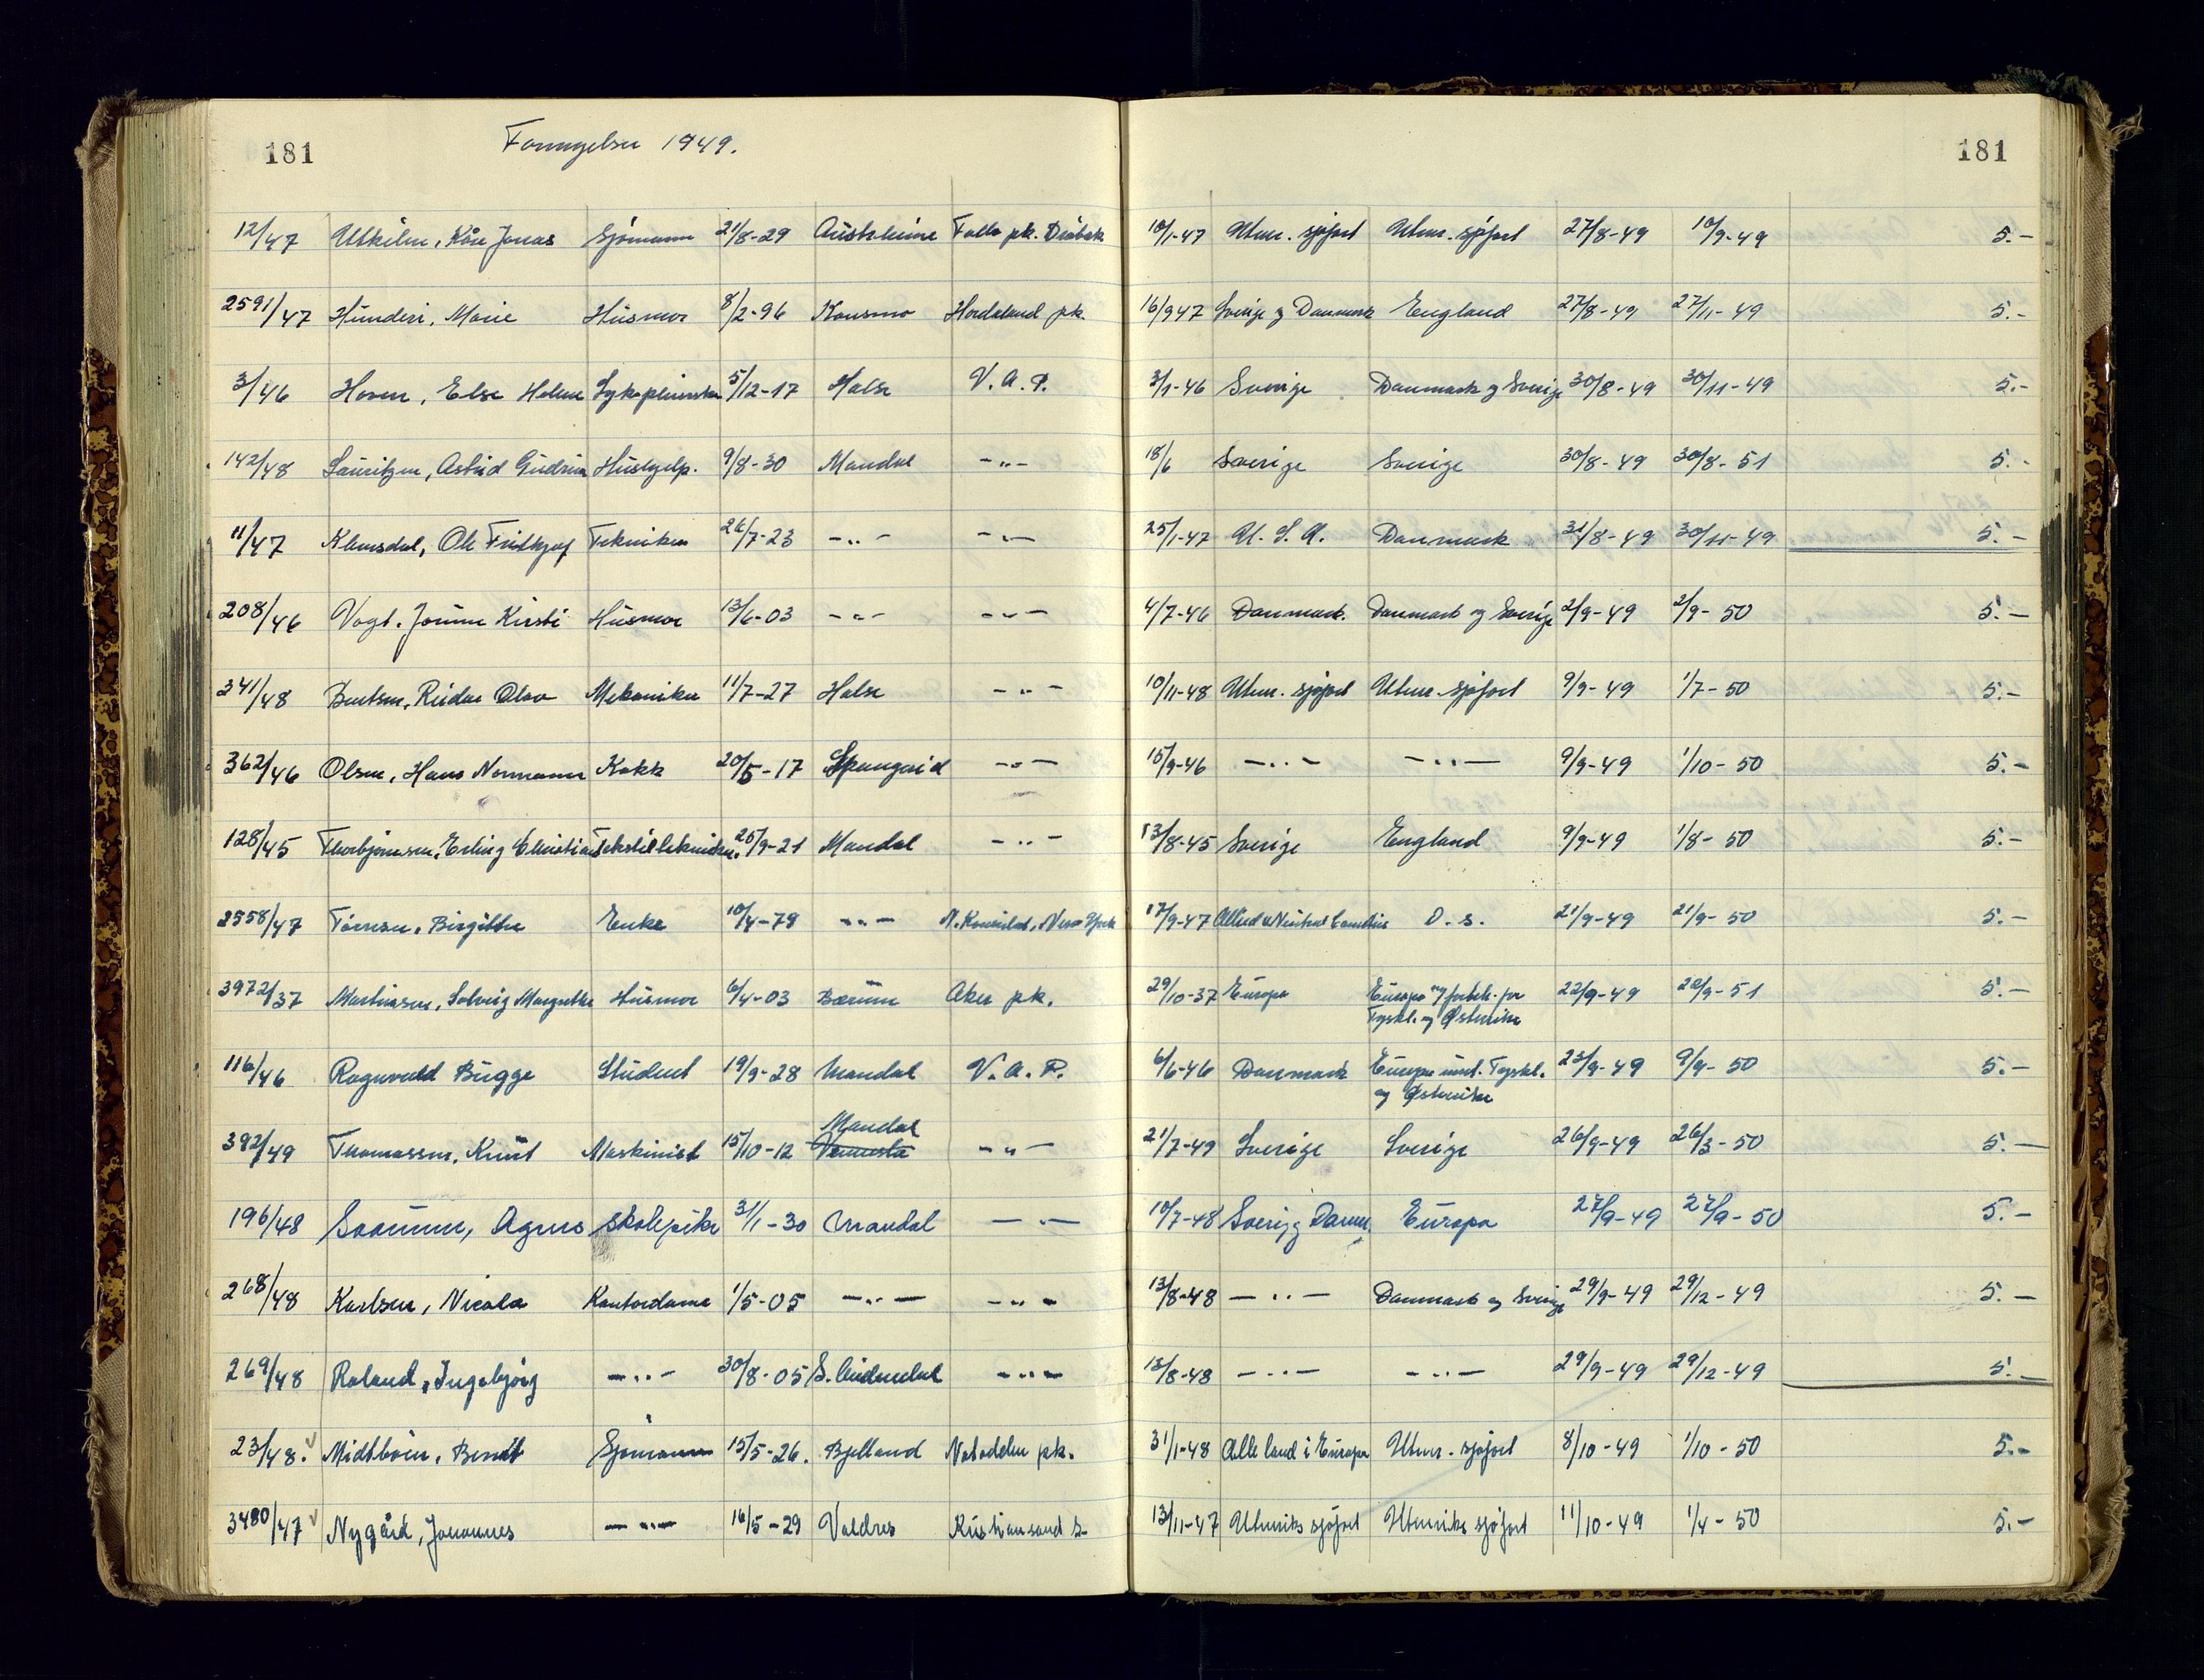 181 Fornyelser 1949. 181
12/47 Utkilen, Kåre Jonas Sjömann 21/8-29 Austrheim Follo pk. Dröbak 10/1-47 Utenr. sjøfart Utenr. sjøfart 27/8-49 10/9-49 5.-
2591/47 Hunderi, Marie Husmor 8/2-96 Konsmo Hordaland pk. 16/9 47 Sverige og Danmark England 27/8-49 27/11-49 5.-
3/46 Hoven, Else Helene Sykepleierske 5/12-17 Halse V. A. P. 3/1-46 Sverige Danmark og Sverige 30/8-49 30/11-49 5.-
142/48 Lauritzen, Astrid Gudrun Hushjelp. 9/8-30 Mandal -"- 18/6 Sverige Sverige 30/8-49 30/8-51 5.-
11/47 Klemsdal, Ole Fridtjof Tekniker 26/7-23 -"- -"- 25/1-47 U. S. A. Danmark 31/8-49 30/11-49 5.-
208/46 Vogt, Jorunn Kirsti Husmor 13/6-03 -"- -"- 4/7-46 Danmark. Danmark og Sverige 2/9-49 2/9-50 5.-
341/48 Bentsen, Reidar Olav Mekaniker 11/7-27 Halse -"- 10/11-48 Utenr. sjøfart Utenr. sjøfart 9/9-49 1/7-50 5.-
362/46 Olsen, Hans Normann Kokk 20/5-17 Spangreid -"- 15/9-46 -"- -"- 9/9-49 1/10-50 5.-
128/45 Thorbjørnsen, Erling Christian Tekstiltekniker. 25/9-21 Mandal -"- 13/8-45 Sverige England 9/9-49 1/8-50 5.-
2558/47 Tørresen, Birgitthe Enke 10/4-79 -"- N. Konsulat, New York 17/9-47 Allied & Neutral Countries D. s. 21/9-49 21/9-50 5.-
3972/37 Martinsen, Solveig Margrethe Husmor 6/4-03 Bærum Aker pk. 29/10-37 Europa Europa og forbeh. for 22/9-49 22/9-51 5.-
Tyskl. og Østerrike
116/46 Ragnvald Bugge Student 19/9-28 Mandal V. A. P. 6/6-46 Danmark Europa unnt. Tyskl. 23/9-49 9/9-50 5.-
og Østerrike
Mandal
392/49 Thomassen, Knut Maskinist 15/10-12 Vennesla -"- 21/7-49 Sverige Sverige 26/9-49 26/3-50 5.-
196/48 Saanum, Agnes skolepike 31/1-30 Mandal -"- 10/7-48 Sverig og Danm. Europa 27/9-49 27/9-50 5.-
268/48 Karlsen, Nicola Kontordame 1/5-05 -"- -"- 13/8-48 -"- Danmark og Sverige 29/9-49 29/12-49 5.-
269/48 Røland, Ingebjörg -"- 30/8-05 S. Audnedal -"- 13/8-48 -"- -"- 29/9-49 29/12-49 5.-
23/48. Midtböen, Bendt Sjömann 15/5-26. Bjelland Notodden pk. 31/1-48 Alle land i Europa Utenr. sjøfart 8/10-49 1/10-50 5.-
3480/47 Nygård, Johannes -"- 16/5-29 Valdres Kristiansand S- 13/11-47 Utenriks sjøfart Utenriks sjøfart 11/10-49 1/4-50 5.-